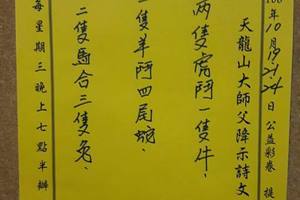 100年10月19.21.24日公益彩卷提
天龍山大師父降示詩文
兩隻虎鬥一隻牛、
隻羊鬥四尾蛇、
二隻馬合三隻兔、
每星期三晚上七點半辦